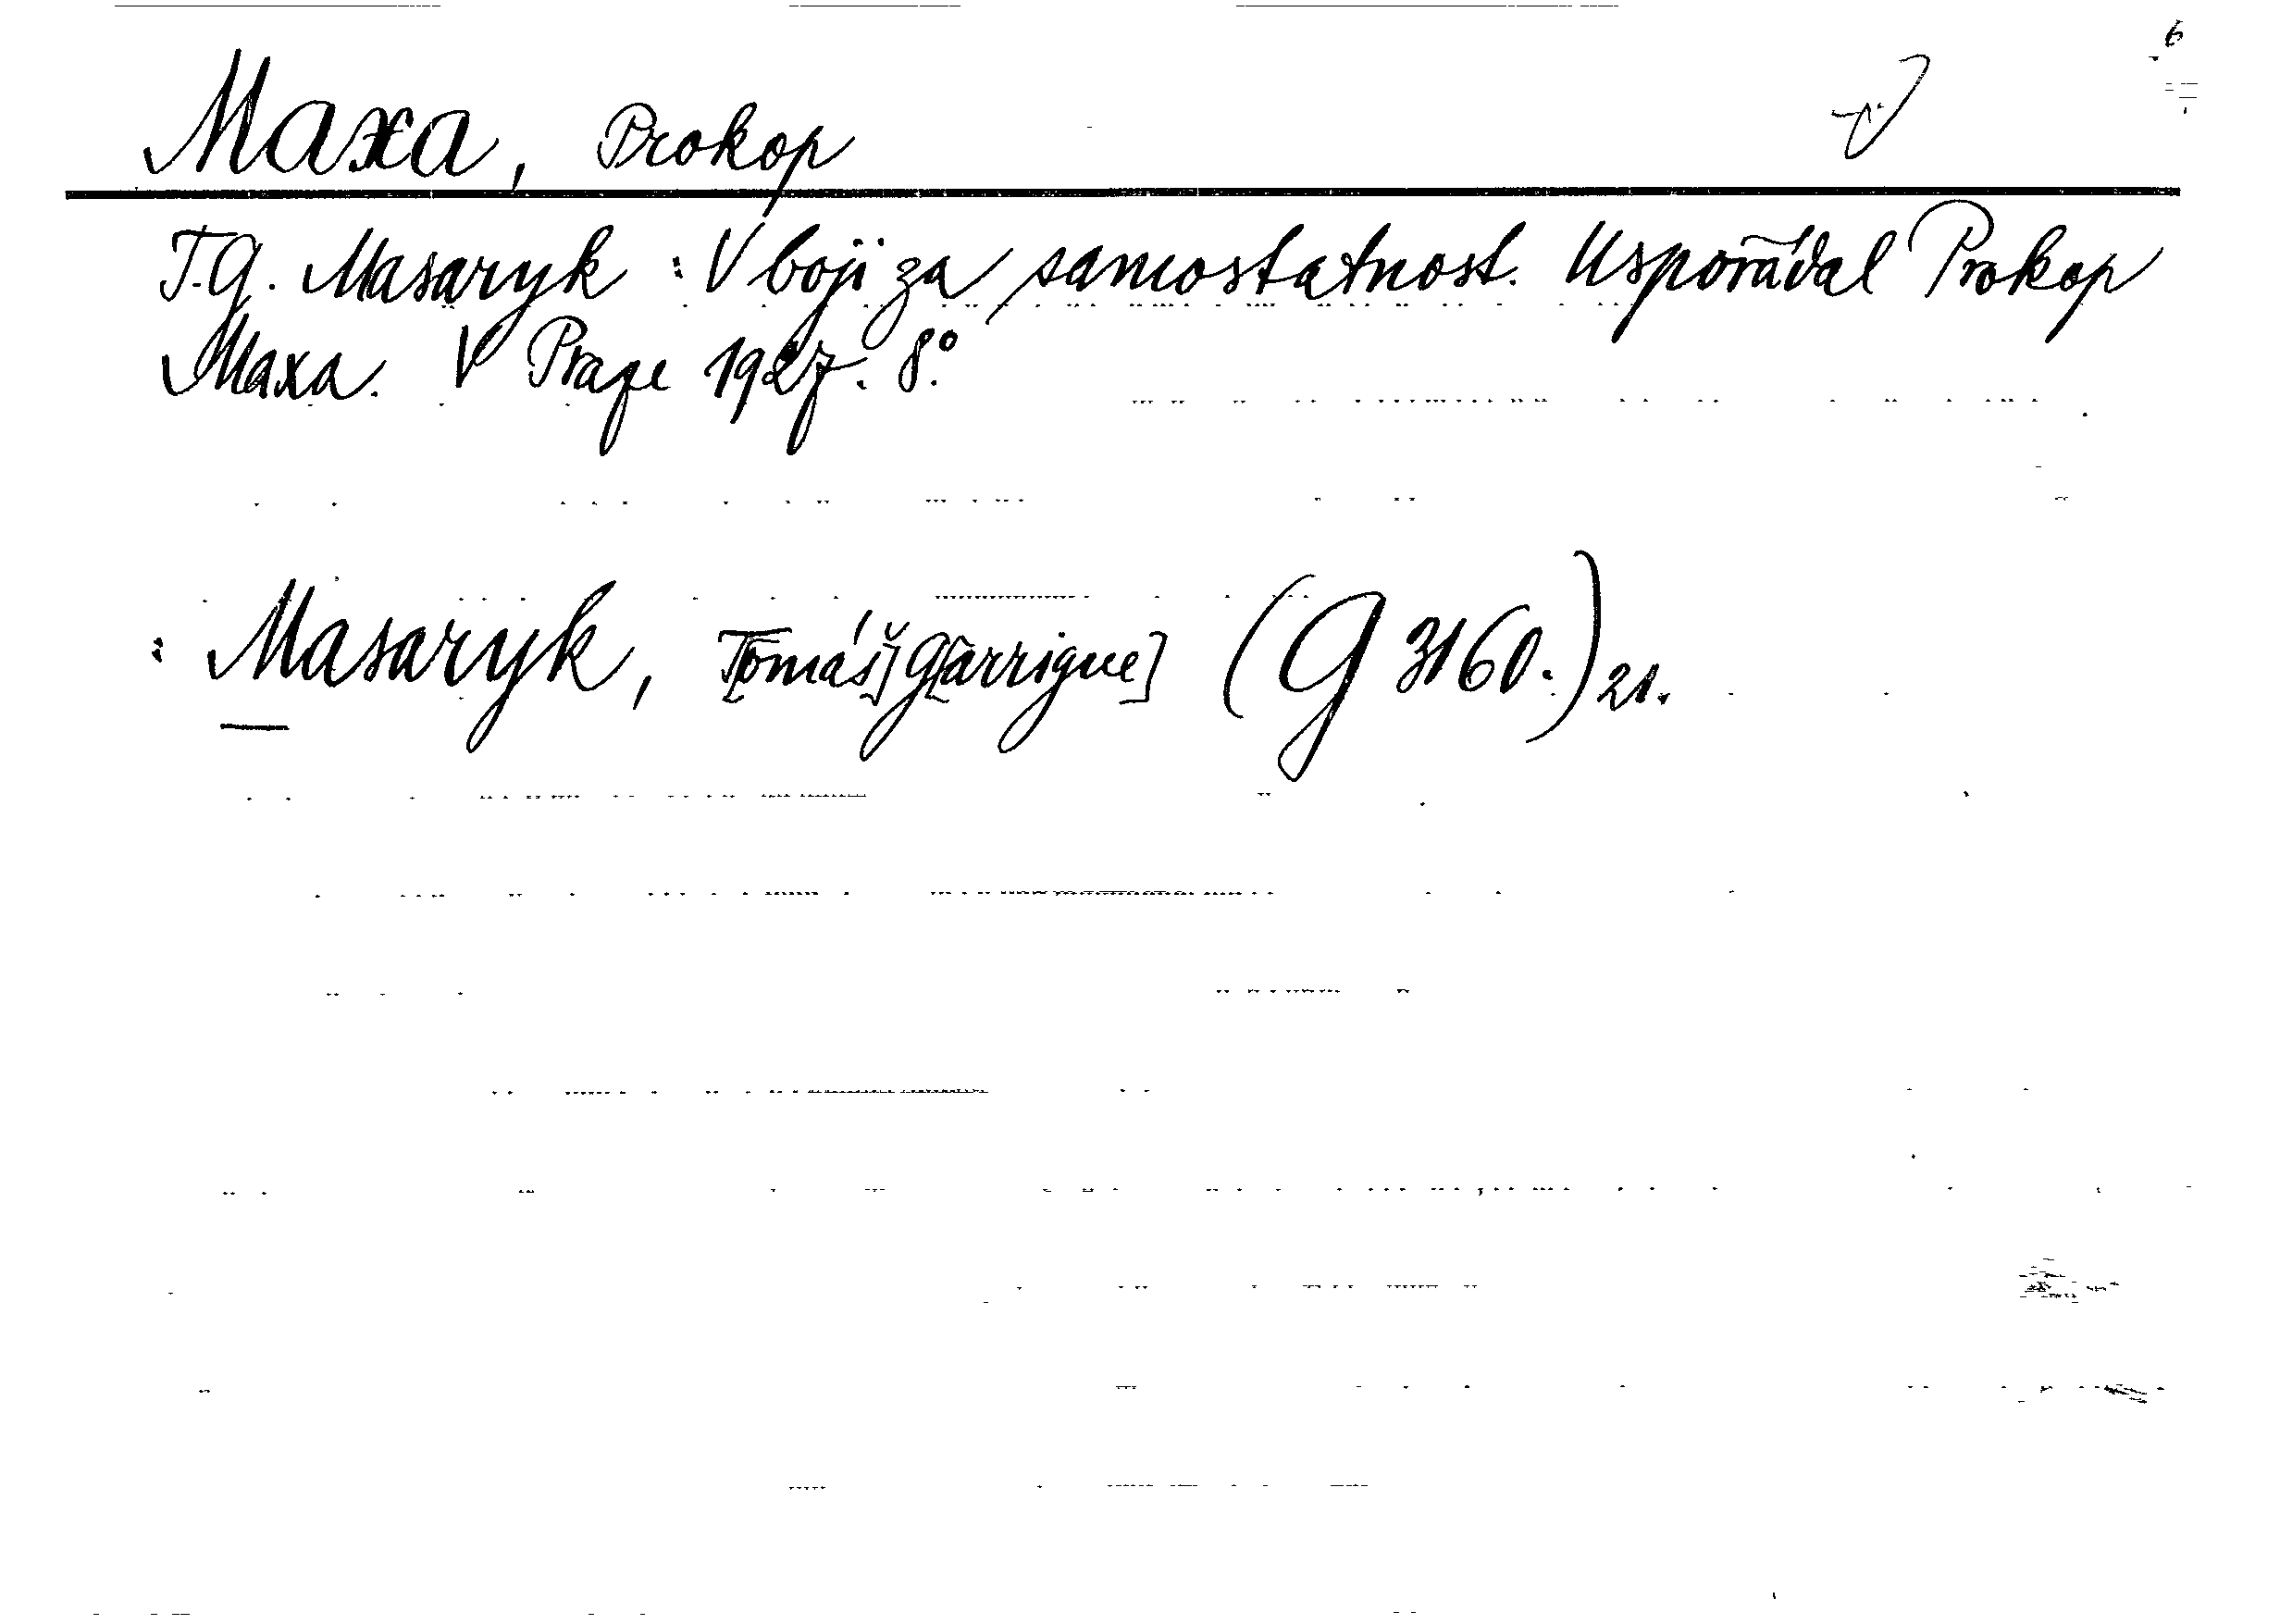 6
Maxa, Prokop
T.G. Masaryk: V boji za samostatnost. Uspořádal Prokop
Maxa. V Praze 1927. 8°.
: Masaryk, T[omáš] G[arrigue] (G 3160.) 21.